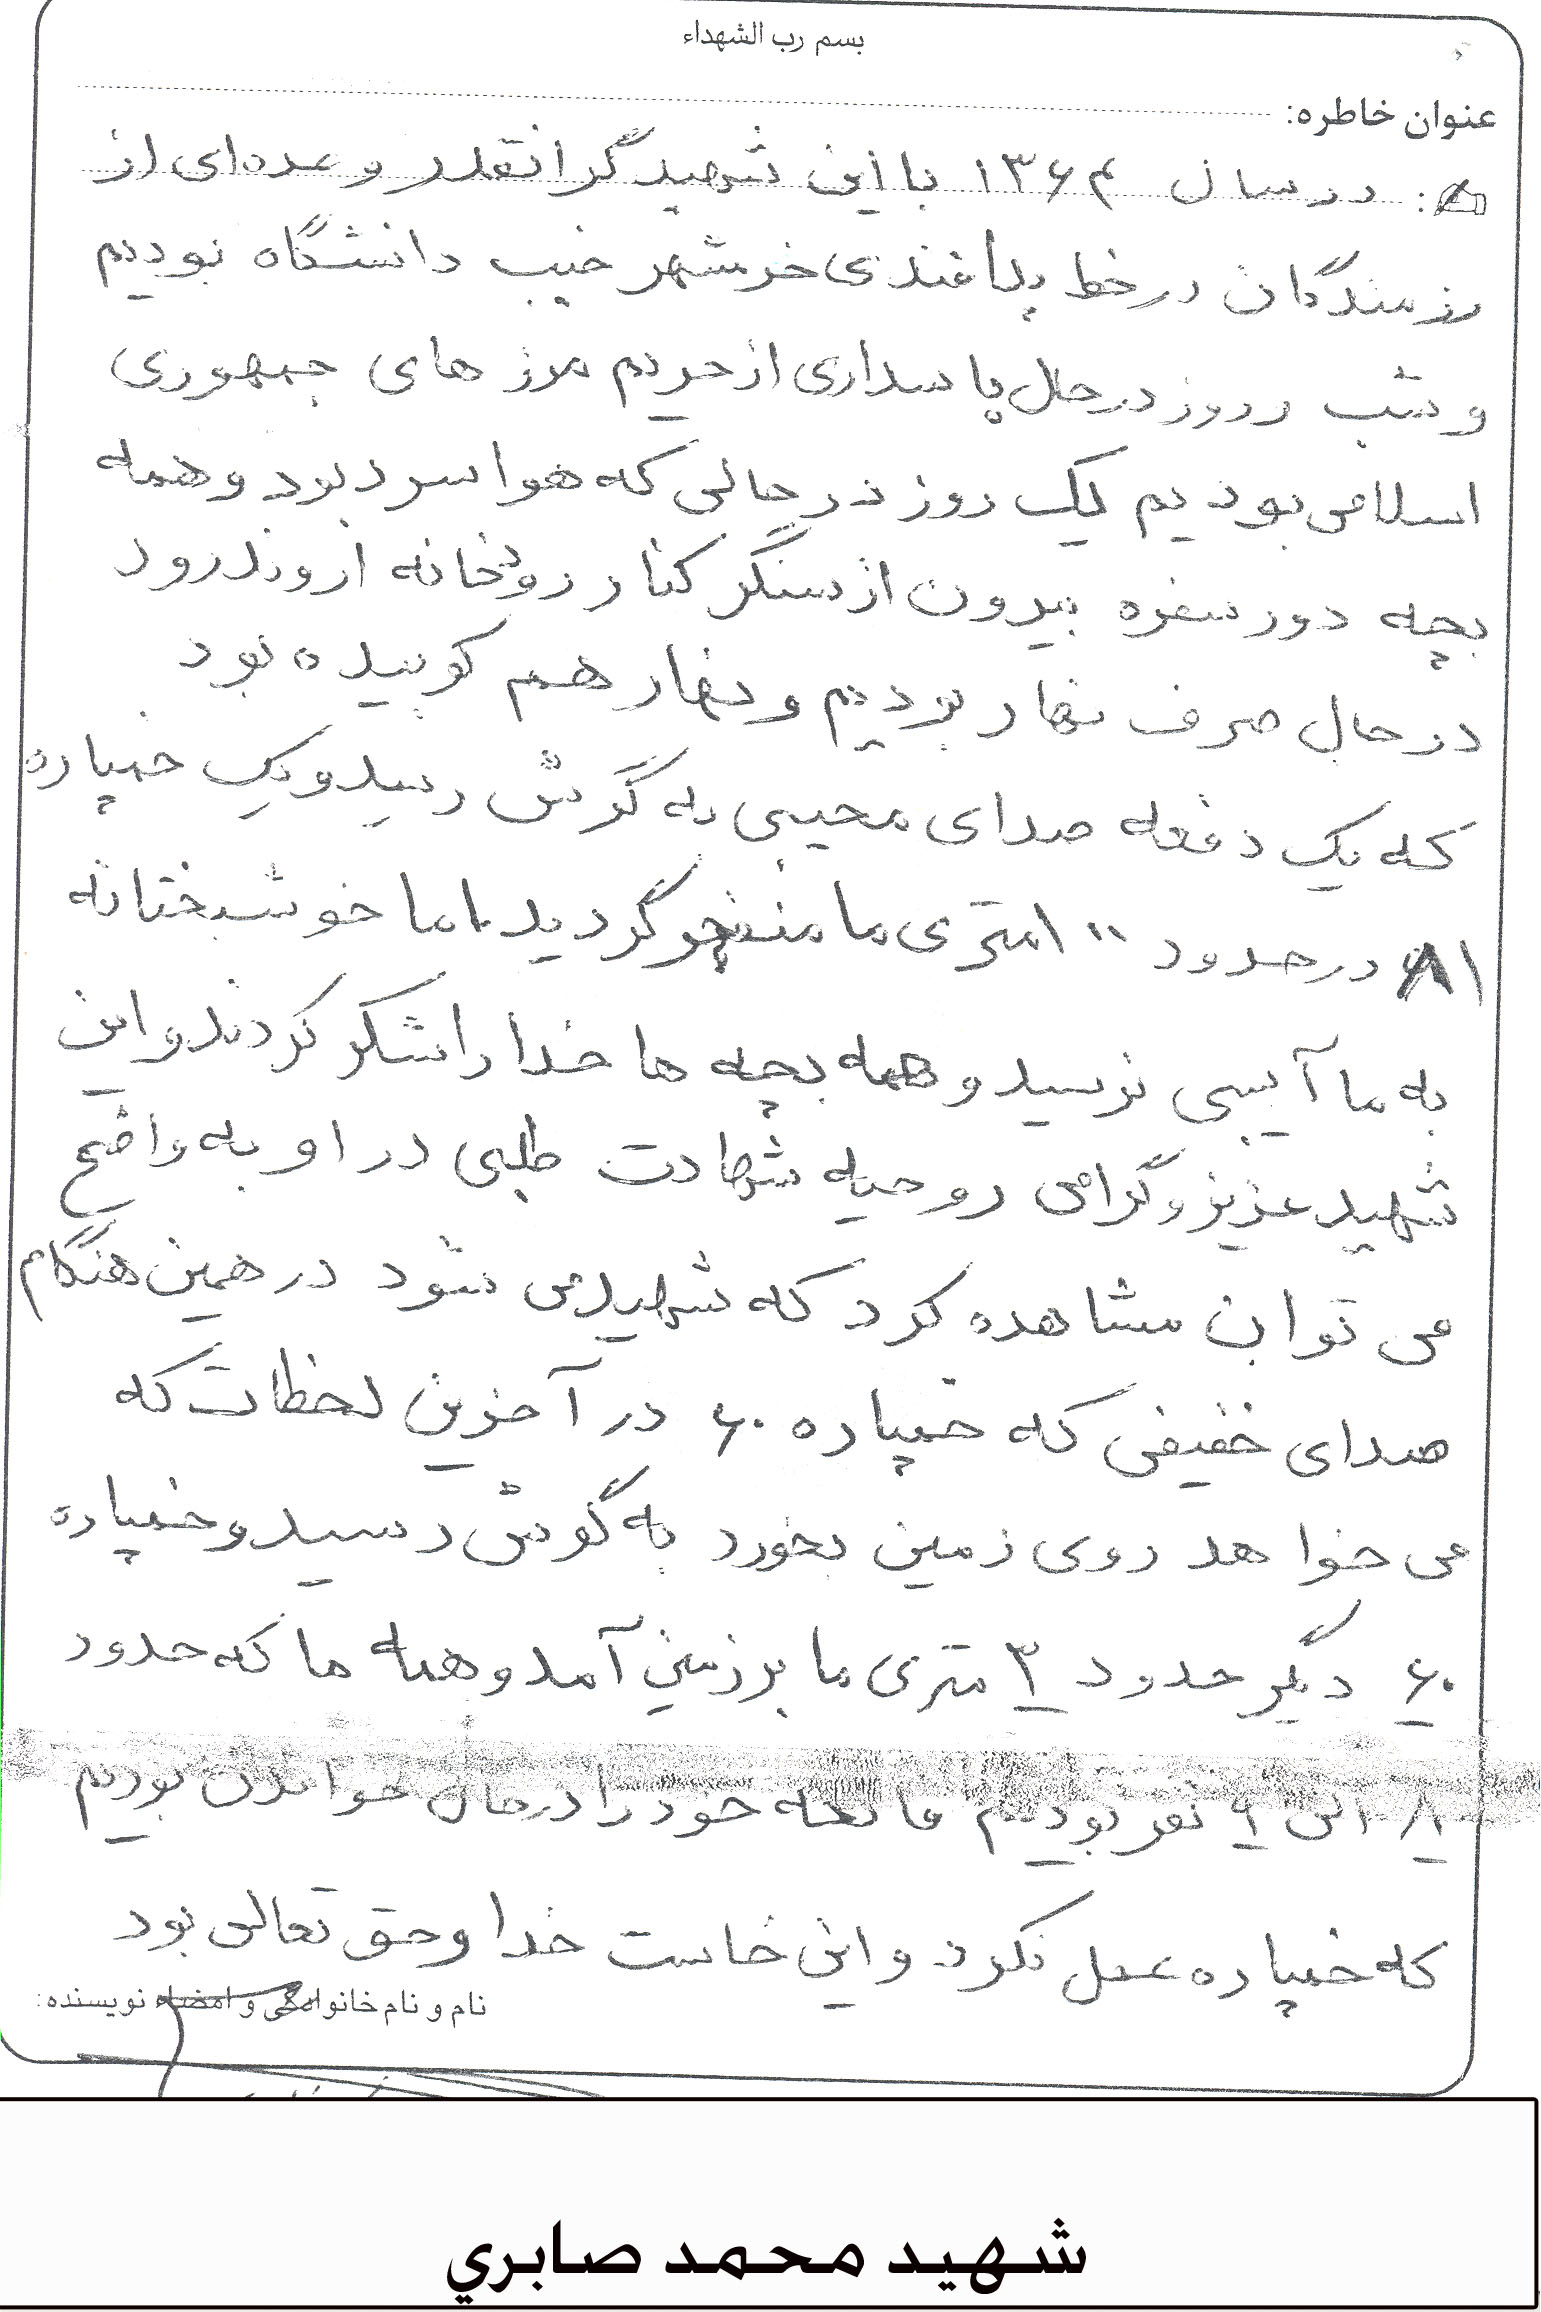 بسم رب الشهداء
عنوان خاطره:
: در سال ۱۳۶۴ با این شهید گرانقدر و عده‌ای از
رزمندگان در خط پدافندی خرمشهر جنب دانشگاه بودیم
و شب و روز در حال پاسداری از حریم مرز های جمهوری
اسلامی بودیم یک روز در حالی که هوا سرد بود و همه
بچه دور سفره بیرون از سنگر کنار رودخانه اروندرود
در حال صرف نهار بودیم و نهار هم کوبیده بود
که یک دفعه صدای مهیبی به گوش رسید و یک خمپاره
۸۱ در حدود ۱۰۰ متری ما منفجر گردید. اما خوشبختانه
به ما آسیبی نرسید و همه بچه ها خدا را شکر کردند و این
شهید عزیز و گرامی روحیه شهادت طلبی در او به واضح
می توان مشاهده کرد که شهید می شود در همین هنگام
صدای خفیفی که خمپاره ۶۰ در آخرین لحظات که
می خواهد روی زمین بخورد به گوش رسید و خمپاره
۶۰ دیگر حدود ۳ متری ما بر زمین آمد و همه ما که حدود
۸ الی ۹ نفر بودیم فاتحه خود را در حال خواندن بودیم
که خمپاره عمل نکرد و این خاست خدا و حق تعالی بود
نام و نام خانوادگی و امضاء نویسنده:
شهيد محمد صابري